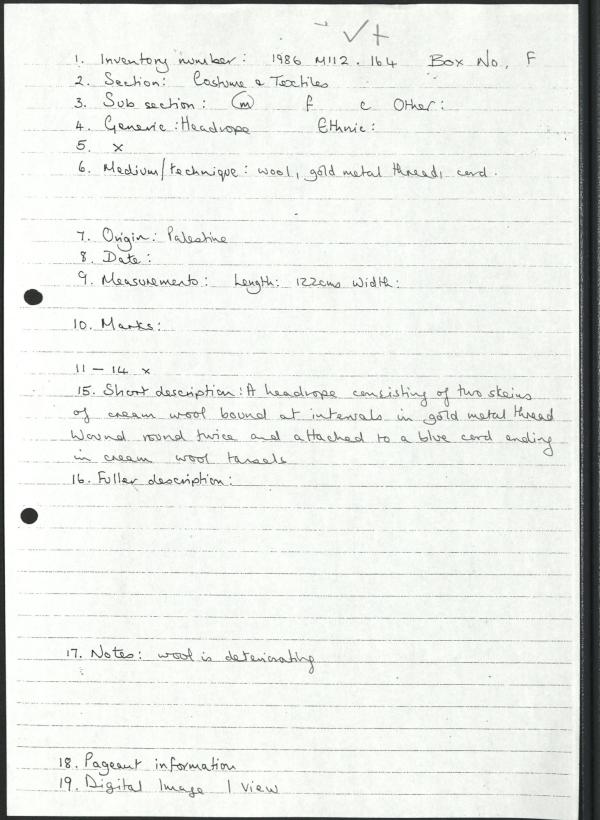 ✓+
1. Inventory number: 1986 M112.164 Box No. F
2. Section: Costume & Textiles
3. Sub section: m f c Other:
4. Generic: Headrope Ethnic:
5. x
6. Medium/technique: wool, gold metal thread, cord.
7. Origin: Palestine
8. Date:
9. Measurements: Length: 122cms Width:
10. Marks:
11 - 14 x
15. Short description: A headrope consisting of two skeins
of cream wool bound at intervals in gold metal thread
Wound round twice and attached to a blue cord ending
in cream wool tassels
16. Fuller description:
17. Notes: wool is deteriorating
18. Pageant information
19. Digital Image 1 View